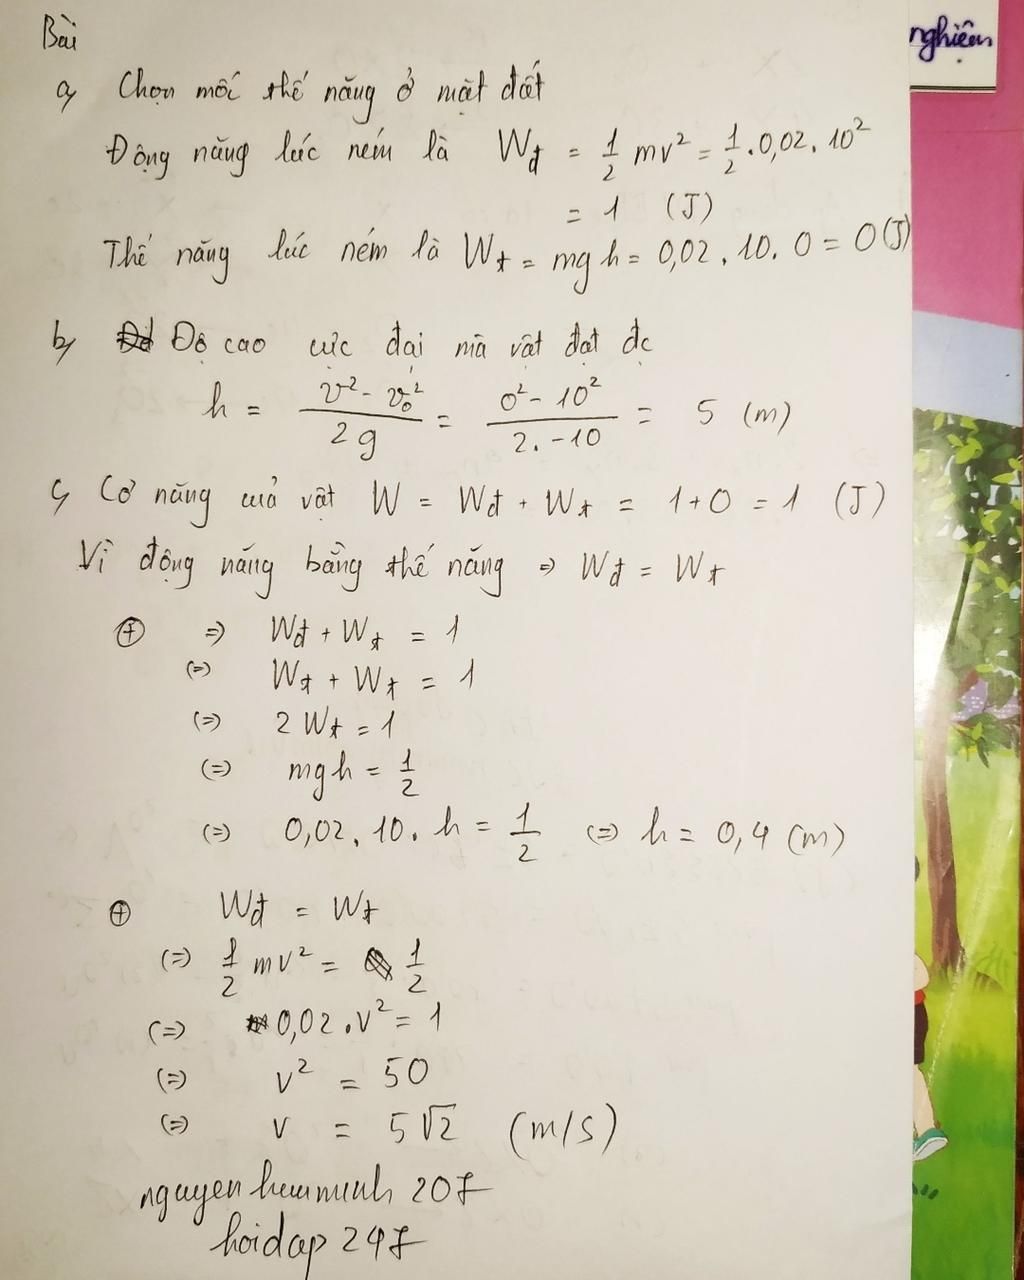 Bài
nghiệm
a, Chọn mốc thế năng ở mặt đất
Động năng lúc ném là Wđ = 1/2 mv² = 1/2 . 0,02 . 10²
= 1 (J)
Thế năng lúc ném là Wt = mgh = 0,02 . 10 . 0 = 0 (J)
b, Độ cao cực đại mà vật đạt đc
h = (v² - v₀²)/(2g) = (0² - 10²)/(2. -10) = 5 (m)
c, Cơ năng của vật W = Wđ + Wt = 1 + 0 = 1 (J)
Vì động năng bằng thế năng => Wđ = Wt
⊕ => Wđ + Wt = 1
(=) Wt + Wt = 1
(=) 2 Wt = 1
(=) mgh = 1/2
(=) 0,02 . 10 . h = 1/2 (=) h = 0,4 (m)
⊕ Wđ = Wt
(=) 1/2 mv² = 1/2
(=) 0,02 . v² = 1
(=) v² = 50
(=) v = 5√2 (m/s)
nguyenhuuminh207
hoidap247